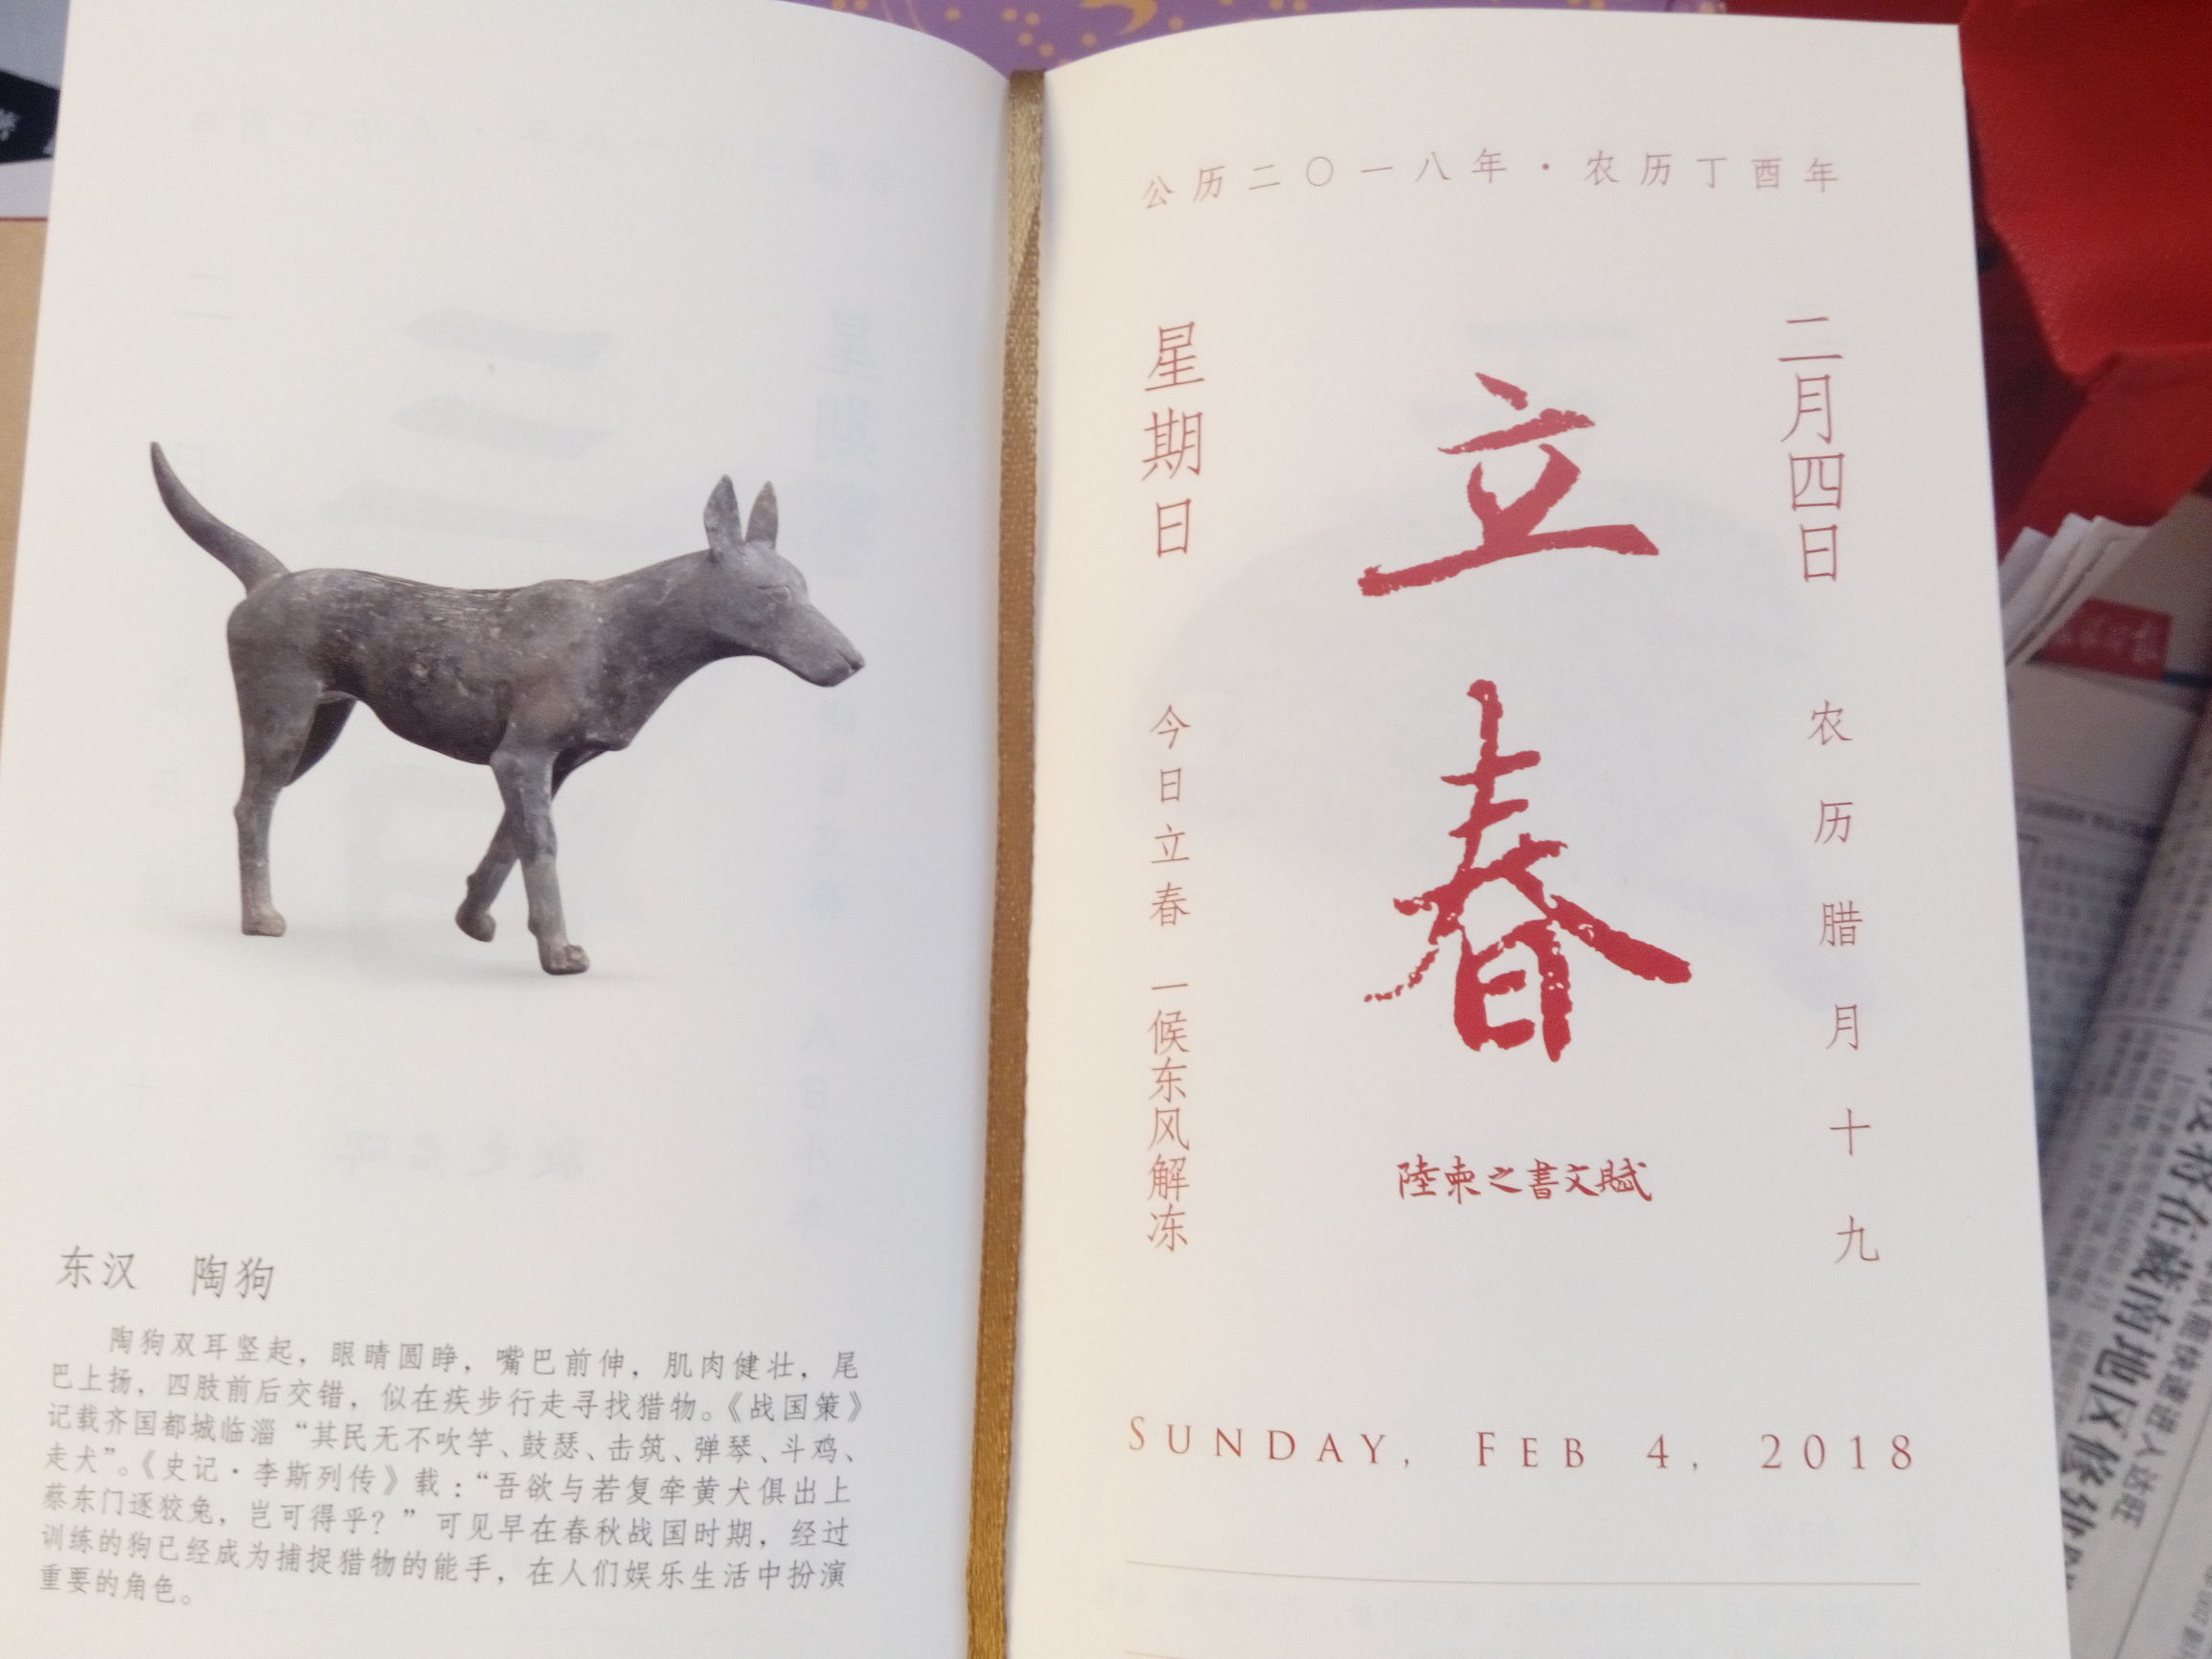 东汉 陶狗
陶狗双耳竖起，眼睛圆睁，嘴巴前伸，肌肉健壮，尾
巴上扬，四肢前后交错，似在疾步行走寻找猎物。《战国策》
记载齐国都城临淄“其民无不吹竽、鼓瑟、击筑、弹琴、斗鸡、
走犬”。《史记·李斯列传》载：“吾欲与若复牵黄犬俱出上
蔡东门逐狡兔，岂可得乎？”可见早在春秋战国时期，经过
训练的狗已经成为捕捉猎物的能手，在人们娱乐生活中扮演
重要的角色。
公历二〇一八年·农历丁酉年
二月四日
农历腊月十九
立春
陸柬之書文賦
星期日
今日立春 一候东风解冻
SUNDAY, FEB 4, 2018